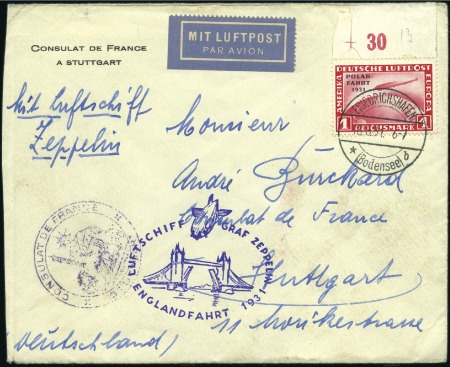 CONSULAT DE FRANCE
A STUTTGART
MIT LUFTPOST
PAR AVION
+ 30 13
DEUTSCHE LUFTPOST
AMERIKA
EUROPA
POLAR-
FAHRT
1931
1 REICHSMARK 1
FRIEDRICHSHAFEN
(Bodensee) b
Mit Luftschiff
Zeppelin
Monsieur
André Burckard
Consulat de France
Stuttgart
(Deutschland)
CONSULAT DE FRANCE
LUFTSCHIFF GRAF ZEPPELIN
ENGLANDFAHRT 1931